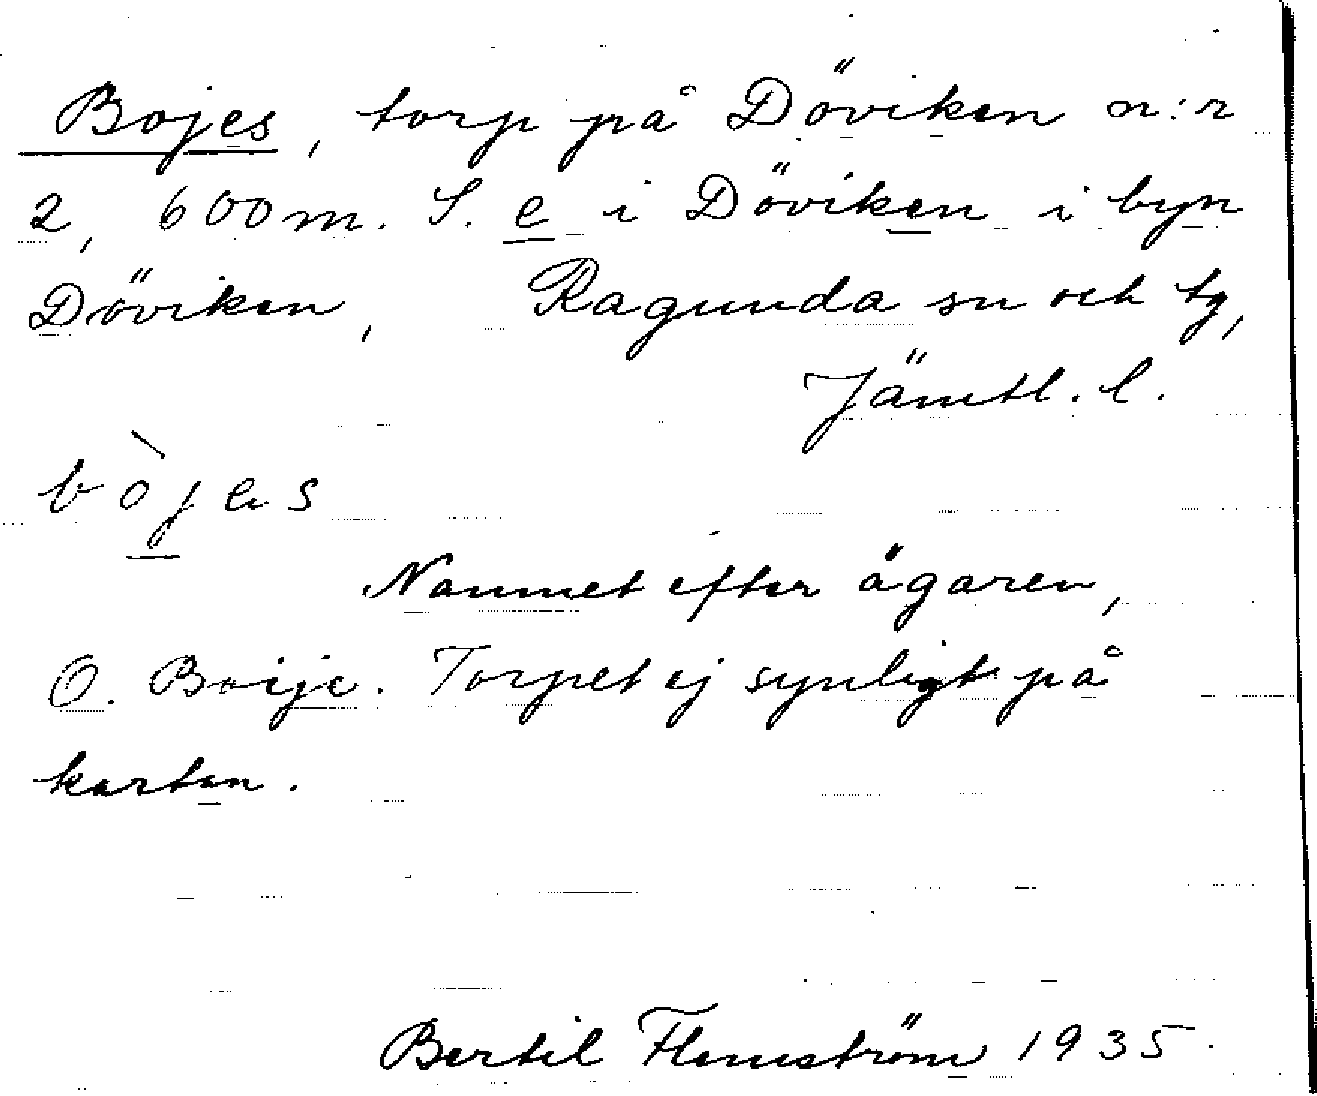 Bojes, torp på Döviken n:r
2, 600 m. S. e i Döviken i byn
Döviken, Ragunda sn och tg,
Jämtl. l.
bòjes
Namnet efter ägaren,
O. Boije. Torpet ej synligt på
kartan.
Bertil Flemström 1935.